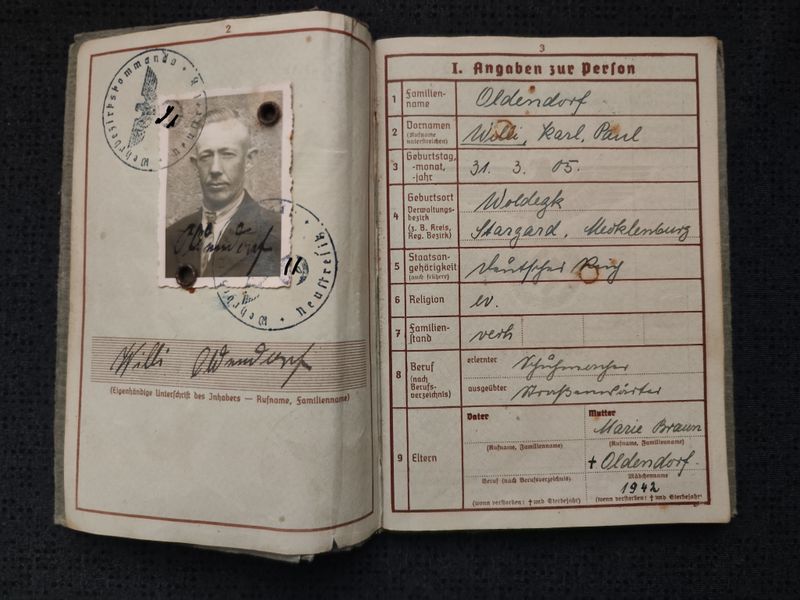 2
Wehrbezirkskommando
Neustrelitz
Willi Oldendorf
(Eigenhändige Unterschrift des Inhabers — Rufname, Familienname)
3
I. Angaben zur Person
1 Familien-name Oldendorf
2 Vornamen (Rufname unterstreichen) Willi, Karl, Paul
3 Geburtstag, -monat, -jahr 31. 3. 05.
4 Geburtsort Woldegk
Verwaltungs-bezirk (z. B. Kreis, Reg. Bezirk) Stargard, Mecklenburg
5 Staatsan-gehörigkeit (auch frühere) Deutsches Reich
6 Religion ev.
7 Familien-stand verh
8 Beruf (nach Berufs-verzeichnis) erlernter Schuhmacher
ausgeübter Straßenwärter
9 Eltern
Vater Mutter
Marie Braun
(Rufname, Familienname) (Rufname, Familienname)
+ Oldendorf.
Beruf (nach Berufsverzeichnis) Mädchenname
1942
(wenn verstorben: † und Sterbejahr) (wenn verstorben: † und Sterbejahr)